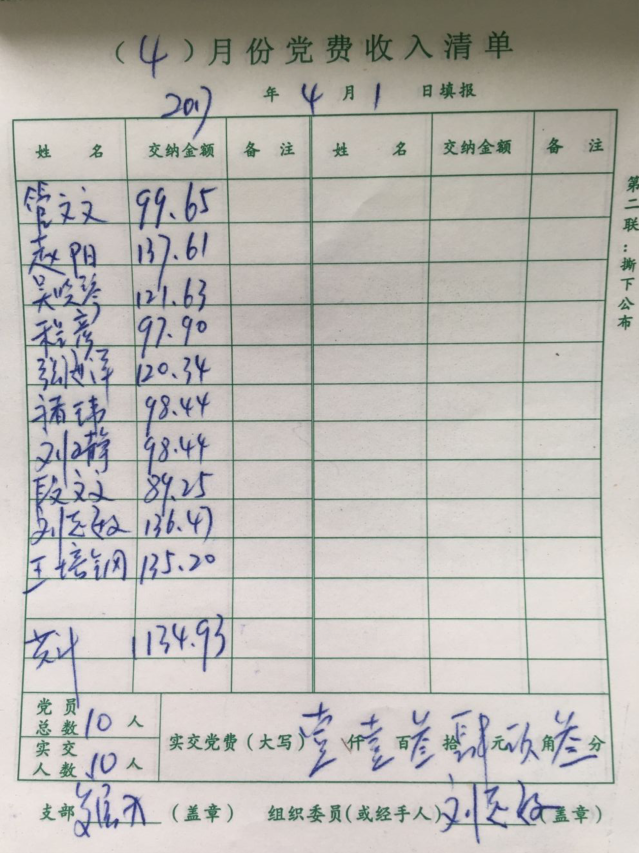 （4）月份党费收入清单
2017年4月1日填报
姓名 交纳金额 备注 姓名 交纳金额 备注
管文文 99.65
赵阳 137.61
吴晓 121.63
程彦 97.90
张 120.34
褚玮 98.44
刘静 98.44
段文文 89.25
刘 136.47
王培钢 135.20
共计 1134.93
党员总数10人
实交人数10人
实交党费（大写）壹仟壹百叁拾肆元玖角叁分
支部（盖章） 组织委员（或经手人）刘（盖章）
第二联：撕下公布